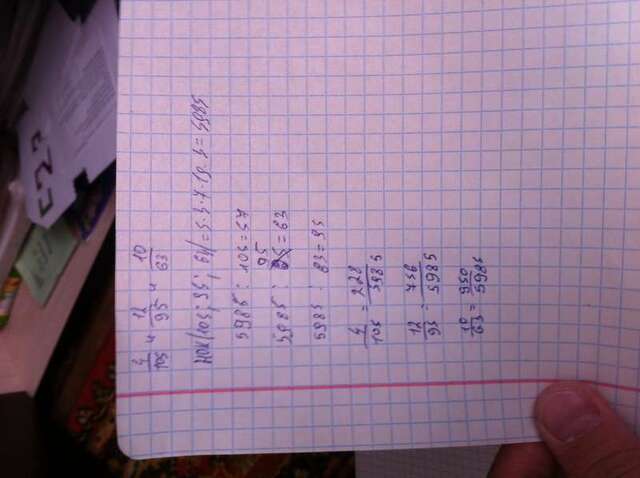 4/105 и 12/95 и 10/63
НОК(105; 95; 63)=5·3·7·19·3=5985
5985 : 105=57
5985 : 95=63
5985 : 63=95
4/105 = 228/5985
12/95 = 756/5985
10/63 = 950/5985